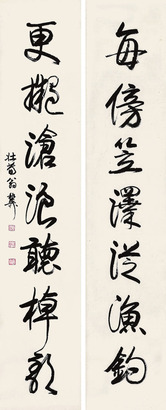 每傍笠澤從漁釣
更擬滄浪聽棹歌
壯暮翁稚